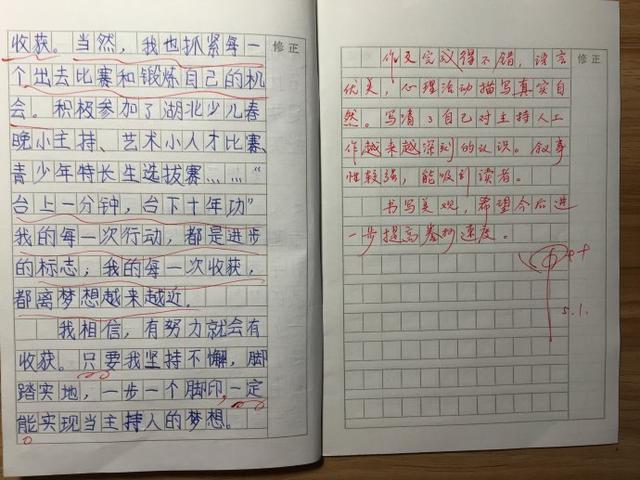 修正
收获。当然，我也抓紧每一
个出去比赛和锻炼自己的机
会。积极参加了湖北少儿春
晚小主持、艺术小人才比赛、
青少年特长生选拔赛……“
台上一分钟，台下十年功”
我的每一次行动，都是进步
的标志；我的每一次收获，
都离梦想越来越近。
我相信，有努力就会有
收获。只要我坚持不懈，脚
踏实地，一步一个脚印，一定
能实现当主持人的梦想。
修正
作文完成得不错，语言
优美，心理活动描写真实自
然。写清了自己对主持人工
作越来越深刻的认识。叙事
性较强，能吸引读者。
书写美观，希望今后进
一步提高速度。
5.1.